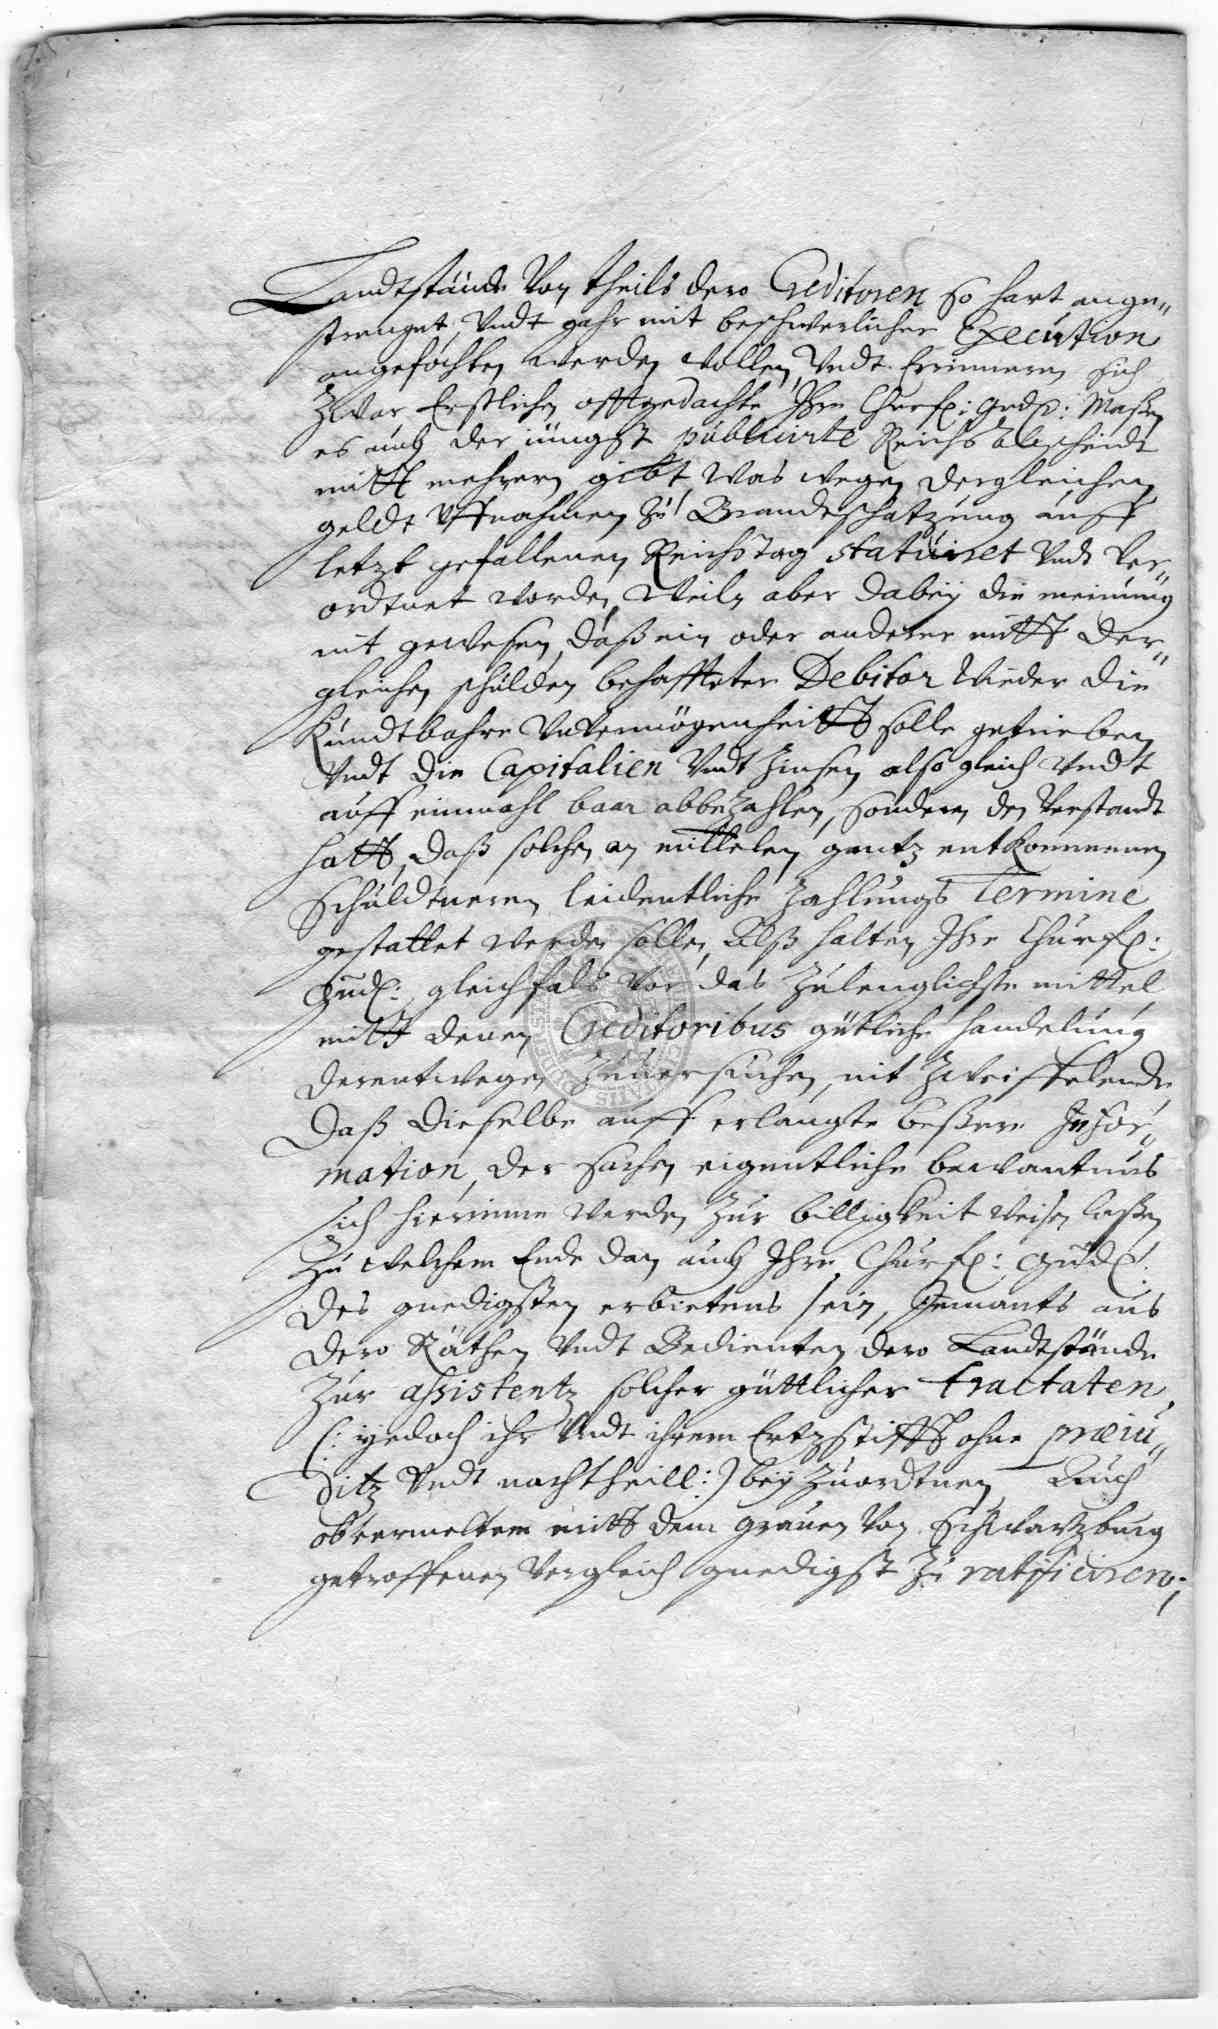 Landtstände von theils dero Creditoren so hart ange„
strenget, vndt gahr mit beschwerlicher Execution
angefochten werden wollen, Vndt Erinneren sich
Zwar Erstlichen offtgedachte Ihre Churfl: Gndl: Maßen
es auch der jüngst publicirte Reichs Abscheidt
mitt mehrern gibt, was wegen dergleichen
geldt Uffnahmen zu Brandtschatzung auff
letzt gefallenen Reichstag statuiret Vndt ver„
ordtnet worden, Weiln aber dabey die meinung
nit gewesen, daß ein oder anderer mitt der„
gleichen schulden behaffteter Debitor wieder die
Kundtbahre Vnvermögenheitt solle getrieben
Vndt die Capitalien Vndt Zinsen also gleich vndt
auff einmahl baar abbezahlen, sondern den Verstandt
hatt, daß solchen an mittelen gantz entkommenen
Schuldtneren leidentliche Zahlungs Termine
gestattet werden sollen, Alß halten Ihre Churfl:
Gndl: gleichfals vor das Zulenglichste mittel
mitt denen Creditoribus gütliche handelung
derentwegen Zuuersuchen, nit Zweiffelende
Daß dieselbe auff erlangte beßere Infor„
mation, der sachen eigentliche bewantnus
sich hierinne werden Zur billigkeit weisen laßen
Zu welchem Ende dan auch Ihre Churfl: Gndl:
des gnedigsten erbietens sein, Jemants aus
dero Räthen Vndt Bedienten dero Landtstände
Zur assistentz solcher güttlicher tractaten
(: yedoch ihr Vndt ihrem Ertzstifft ohne præiu„
ditz Vndt nachtheill :) bey Zuordtnen, Auch
obvermeltem mitt dem grauen von Schwartzburg
getroffenen Vergleich gnedigst Zu ratificiren;